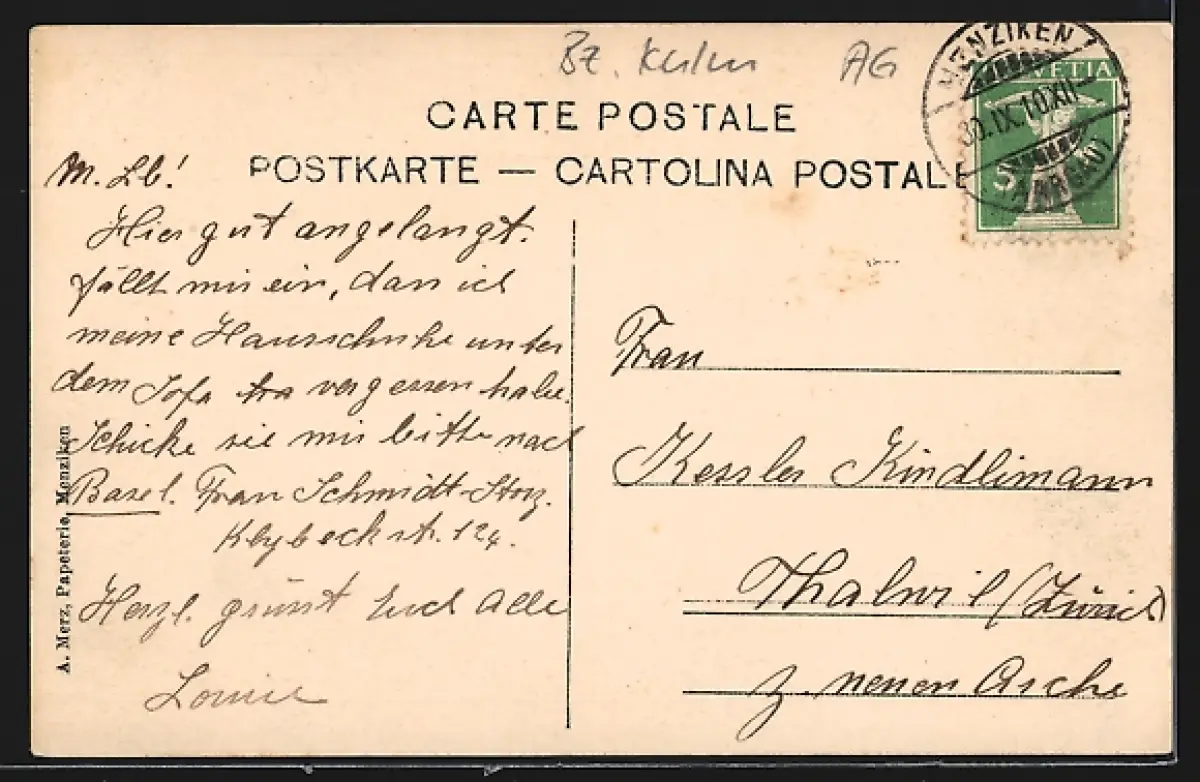 Bz. Kulm AG
CARTE POSTALE
POSTKARTE — CARTOLINA POSTALE
MENZIKEN
30.IX.10.XII
(AARGAU)
HELVETIA
5
M. Lb!
Hier gut angelangt.
fällt mir ein, dass ich
meine Hausschuhe unter
dem Sofa vergessen habe.
Schicke sie mir bitte nach
Basel. Frau Schmidt-Storz.
Klybeckstr. 124.
Herzl. grüsst Euch Alle
Louise
A. Merz, Papeterie, Menziken
Frau
Kessler Kindlimann
Thalwil (Zürich)
z. neuen Asche